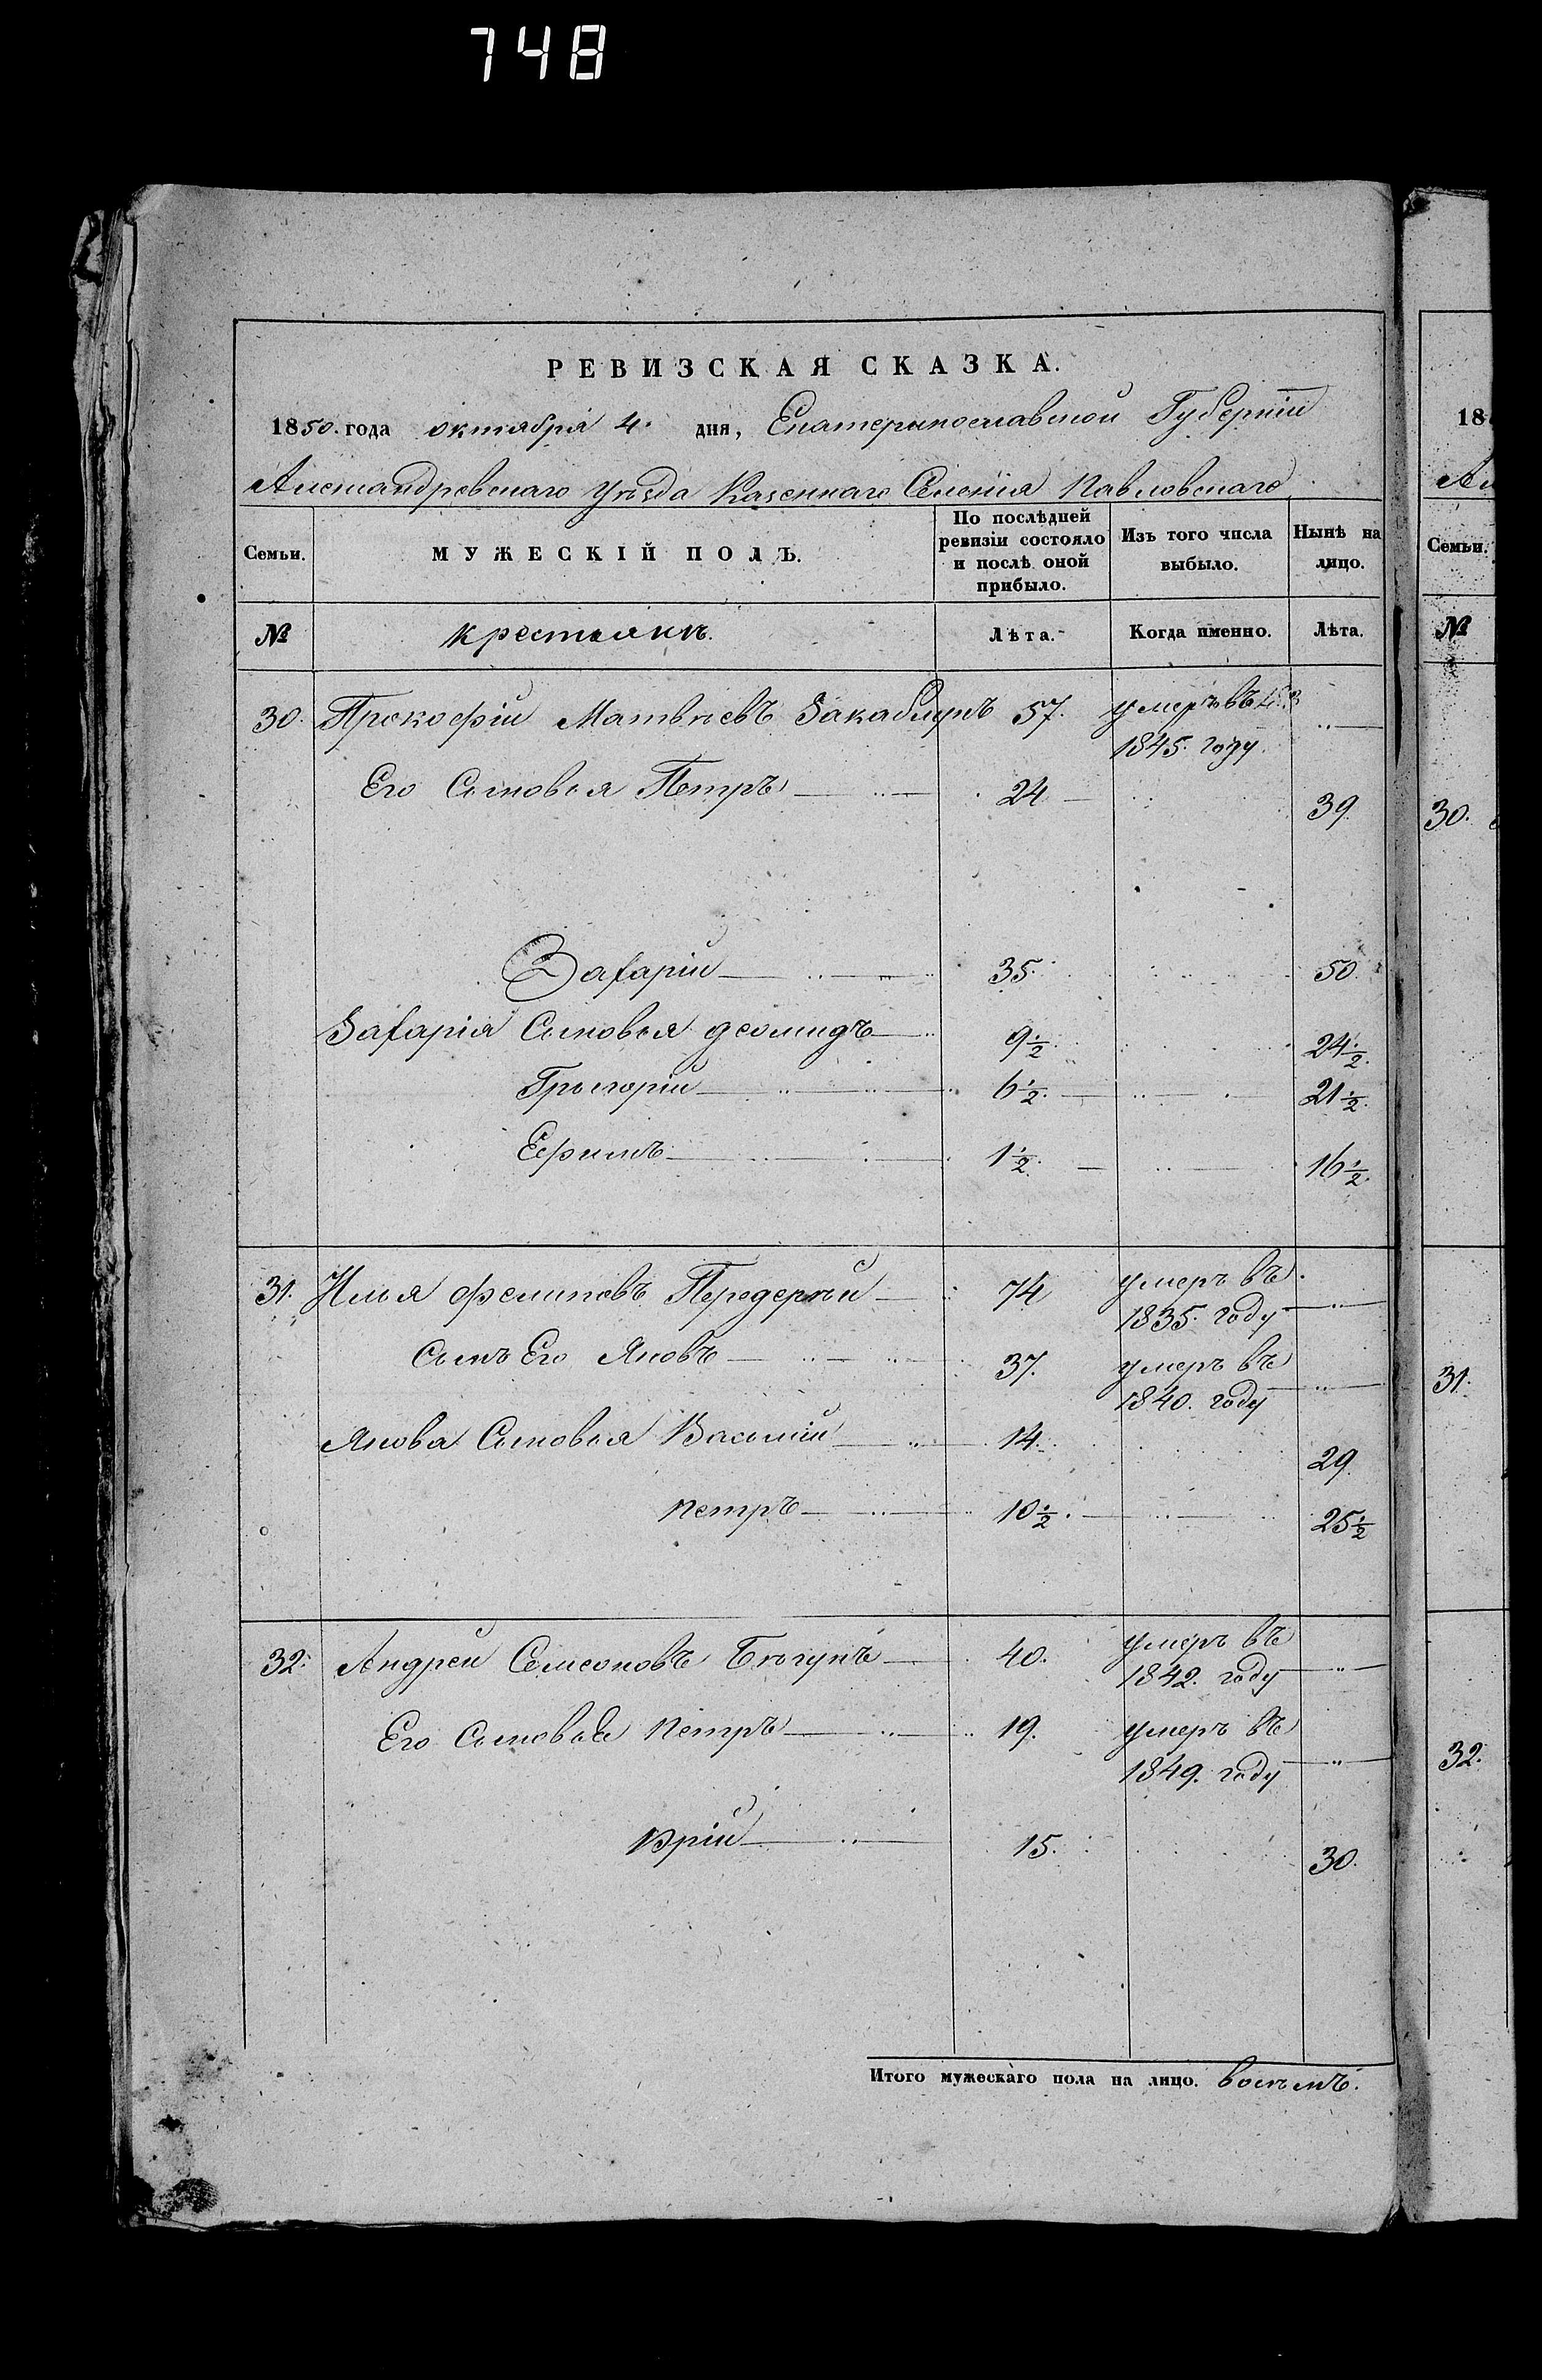 748
РЕВИЗСКАЯ СКАЗКА.
1850. года октября 4. дня, Екатеринославской Губерніи
Александровскаго уѣзда Казеннаго Селенія Павловскаго
Семьи. МУЖЕСКІЙ ПОЛЪ. По послѣдней ревизіи состояло и послѣ оной прибыло. Изъ того числа выбыло. Нынѣ на лицо.
№ крестьянъ. Лѣта. Когда именно. Лѣта.
30. Прокофій Матвѣевъ Закаблукъ 57. умеръ въ
1845. году
Его Сыновья Петръ 24 39.
Захарій 35. 50.
Захарія Сыновья деомидъ 9 1/2 24 1/2.
Грыгорій 6 1/2. 21 1/2.
Ефимъ 1 1/2. 16 1/2.
31. Илья филиповъ Передерѣй 74 умеръ въ
1835. году
Сынъ Его Яковъ 37. умеръ въ
1840. году
Якова Сыновья Василій 14. 29.
петръ 10 1/2. 25 1/2
32. Андрей Семеоновъ Бѣгунъ 40. умеръ въ
1842. году
Его Сыновья петръ 19. умеръ въ
1849. году
юрій 15. 30.
Итого мужескаго пола на лицо. восъмъ.
18
Ал
Семьи.
№
30.
31.
32.